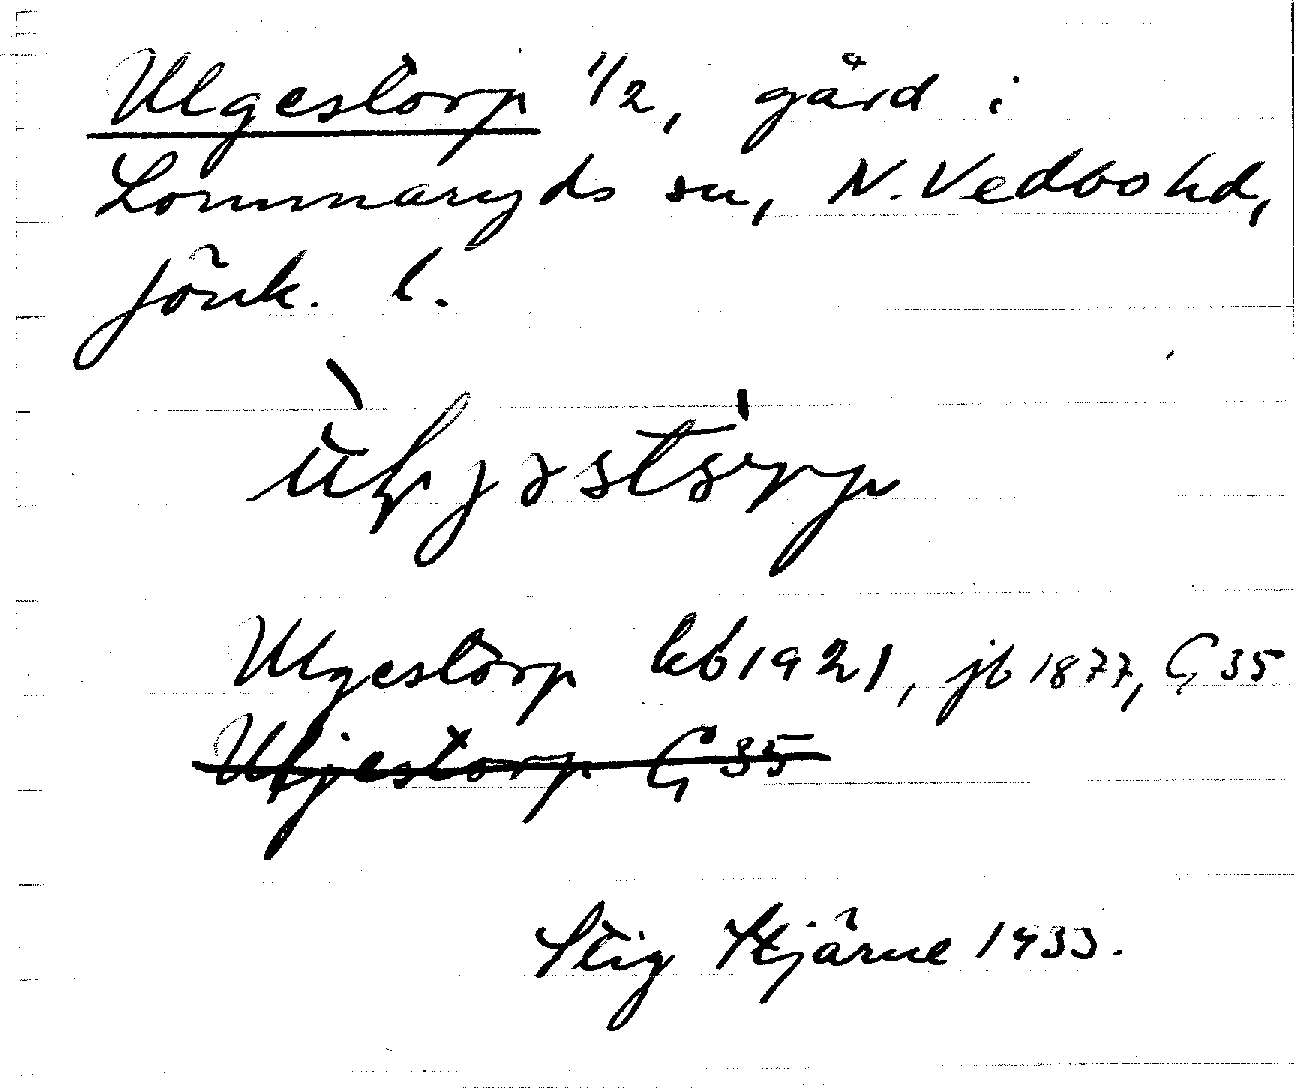 Ulgestorp 1/2, gård i
Lommaryds sn, N. Vedbo hd,
Jönk. l.
Ulgestorp kb 1921, jb 1877, G 35
Uljestorp G 35
Stig Hjärne 1933.